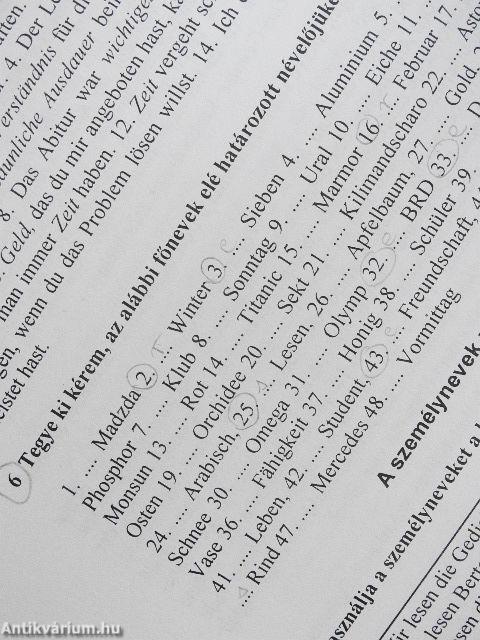 iten.
4. Der Lö
verständnis für di
aunliche Ausdauer bein
8. Das Abitur war wichtige
Geld, das du mir angeboten hast, ka
man immer Zeit haben. 12. Zeit vergeht sc
gen, wenn du das Problem lösen willst. 14. Ich
eistet hast.
6 Tegye ki kérem, az alábbi főnevek elé határozott névelőjüke
1. .... Madzda 2. .... Winter 3 .... Sieben 4. .... Aluminium 5.
Phosphor 7. .... Klub 8. .... Sonntag 9 .... Ural 10 .... Eiche 11.
Monsun 13 .... Rot 14 .... Titanic 15 .... Marmor 16 .... Februar 17
Osten 19 .... Orchidee 20 .... Sekt 21 .... Kilimandscharo 22 .... Ast
24. .... Arabisch, 25 .... Lesen, 26. .... Apfelbaum, 27 .... Gold,
Schnee 30 .... Omega 31 .... Olymp 32 .... BRD 33 .... D
Vase 36 .... Fähigkeit 37 .... Honig 38 .... Schüler 39
41. .... Leben, 42. .... Student, 43 .... Freundschaft, 44
.... Rind 47 .... Mercedes 48 .... Vormittag
A személynevek
használja a személyneveket a
lesen die Gedi
lesen Bert
esen d
Antikvárium.hu